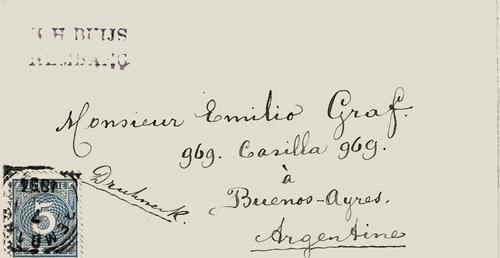 J. H BUIJS
REMBANG
Monsieur Emilio Graf.
969. Casilla 969.
à
Buenos-Ayres.
Argentine
Drucksack.
5